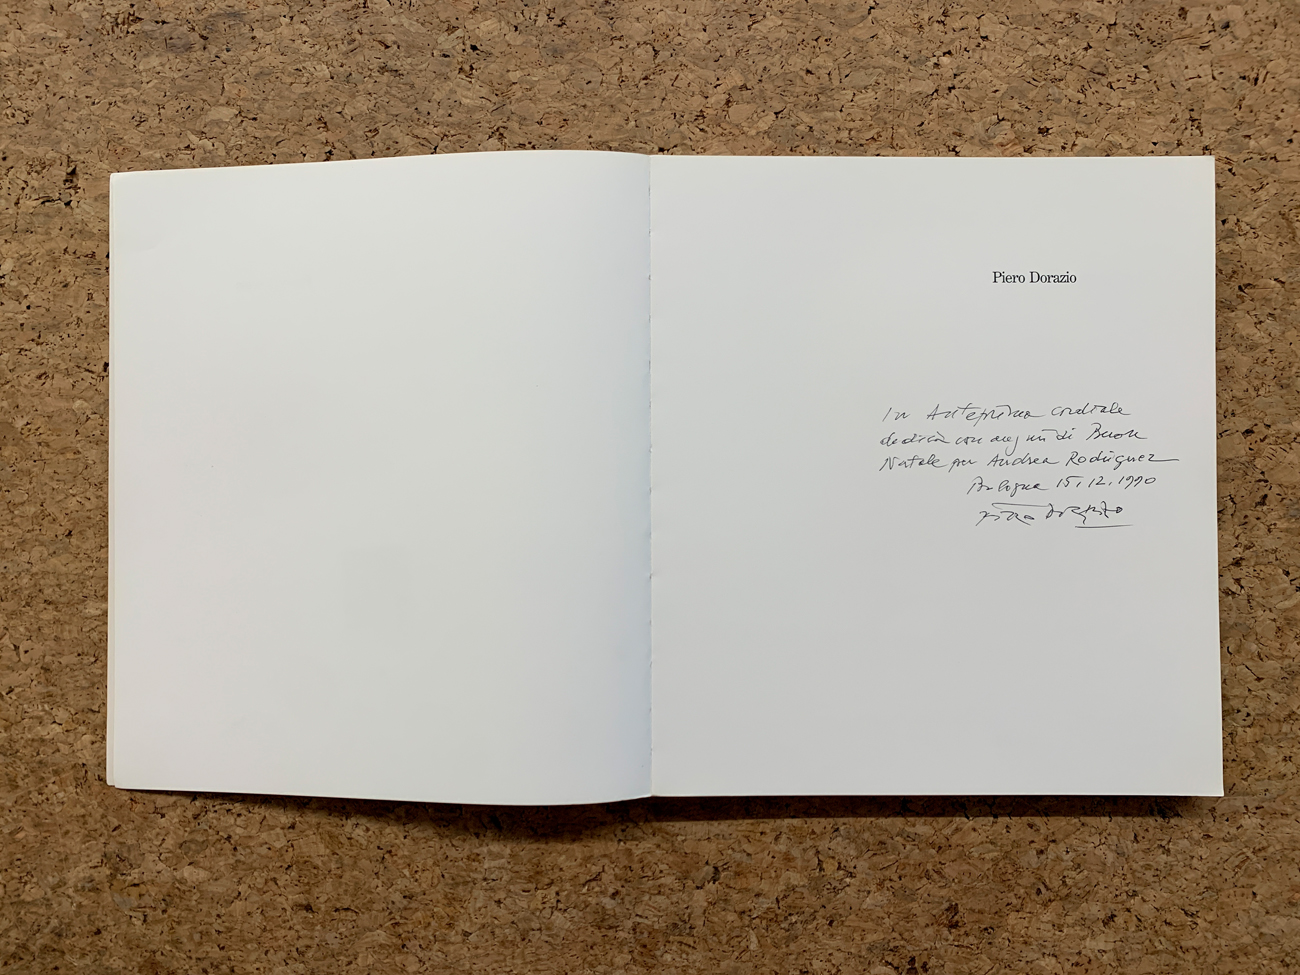 Piero Dorazio
In Anteprima cordiale
dedica con auguri di Buon
Natale per Andrea Rodriguez
Bologna 15.12.1990
Piero Dorazio